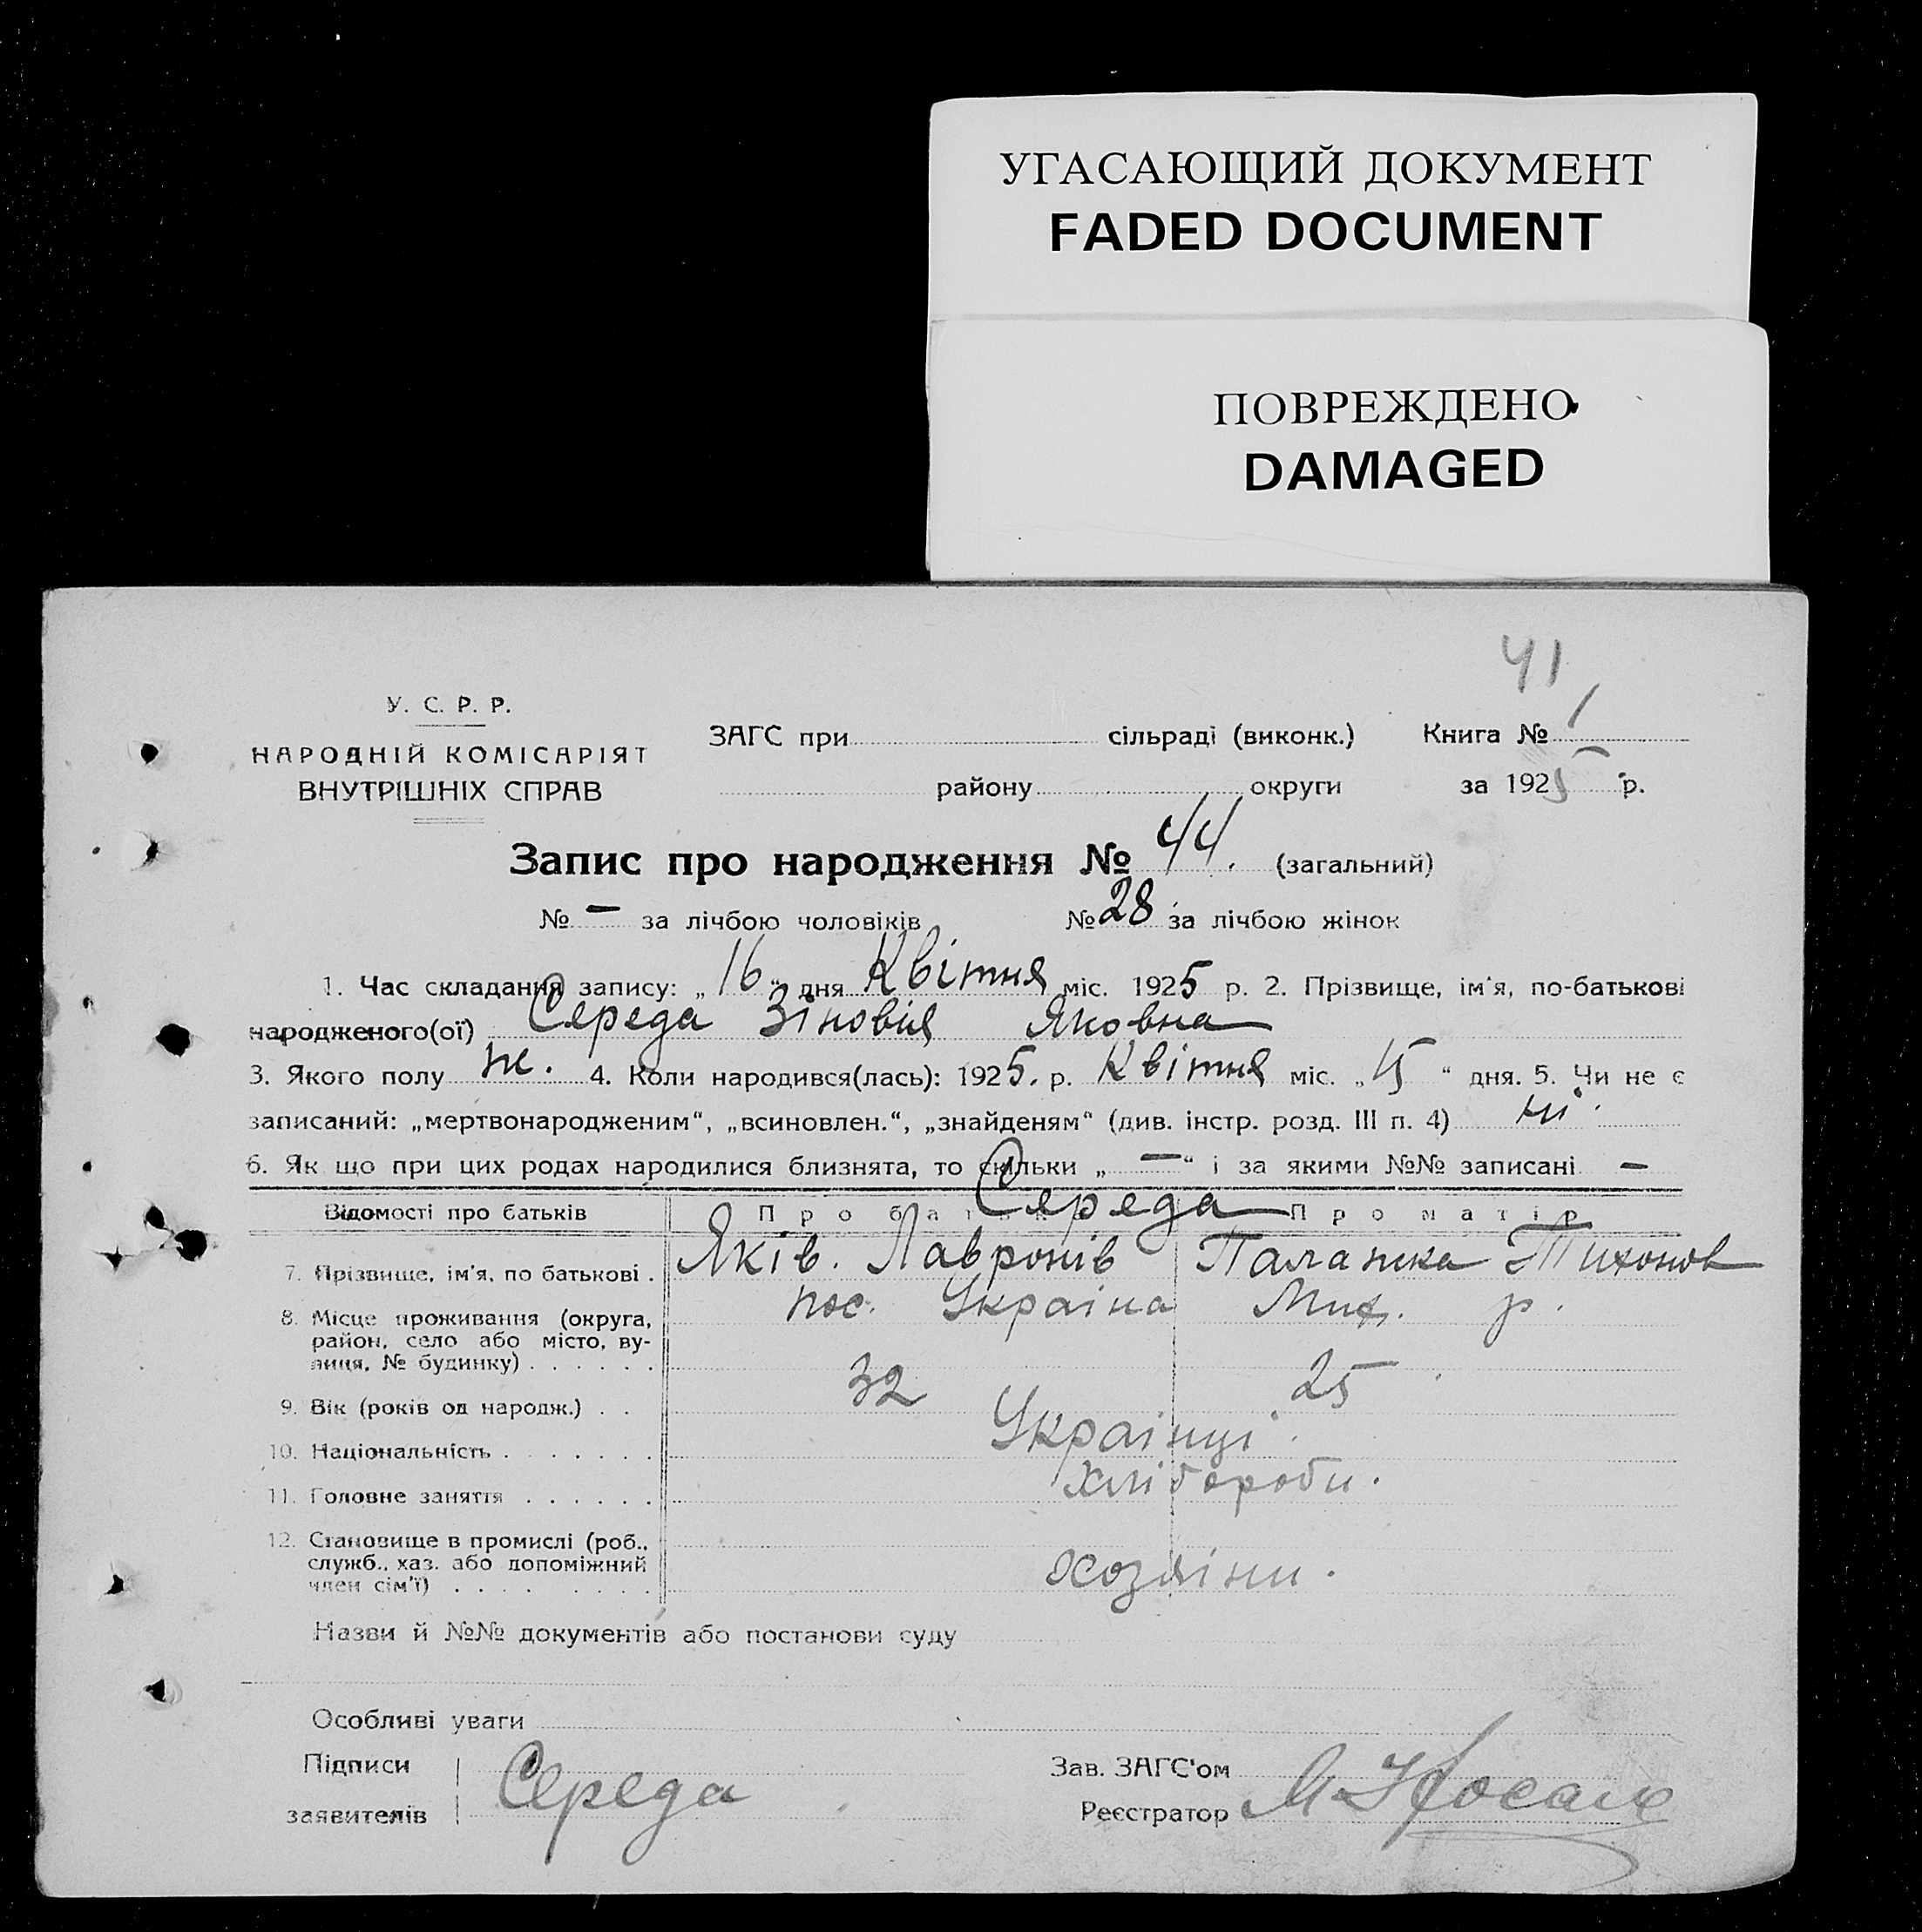 УГАСАЮЩИЙ ДОКУМЕНТ
FADED DOCUMENT
ПОВРЕЖДЕНО
DAMAGED
41
У. С. Р. Р.
НАРОДНІЙ КОМІСАРІЯТ
ВНУТРІШНІХ СПРАВ
ЗАГС при сільраді (виконк.) Книга № 1
району округи за 1925 р.
Запис про народження № 44. (загальний)
№ — за лічбою чоловіків № 28 за лічбою жінок
1. Час складання запису: „16“ дня Квітня міс. 1925 р. 2. Прізвище, ім'я, по-батькові
народженого(ої) Середа Зіновія Яковна
3. Якого полу ж. 4. Коли народився(лась): 1925. р. Квітня міс. „15“ дня. 5. Чи не є
записаний: „мертвонародженим“, „всиновлен.“, „знайденям“ (див. інстр. розд. III п. 4) ні.
6. Як що при цих родах народилися близнята, то скільки „—“ і за якими №№ записані —
Відомості про батьків Про батька Про матір
Середа
7. Прізвище, ім'я, по батькові . Яків. Лавронів Палажка Тихонов
8. Місце проживання (округа,
район, село або місто, ву-
лиця, № будинку) . . . . . .
пос. Україна Мих. р.
9. Вік (років од народж.) . . 32 25
10. Національність . . . . . . . Українці.
11. Головне заняття . . . . . . хлібороби.
12. Становище в промислі (роб.,
служб., хаз. або допоміжний
член сім'ї) . . . . . . . . .
хозяіни.
Назви й №№ документів або постанови суду
Особливі уваги
Підписи
заявителів
Середа
Зав. ЗАГС'ом
Реєстратор М. Носаль